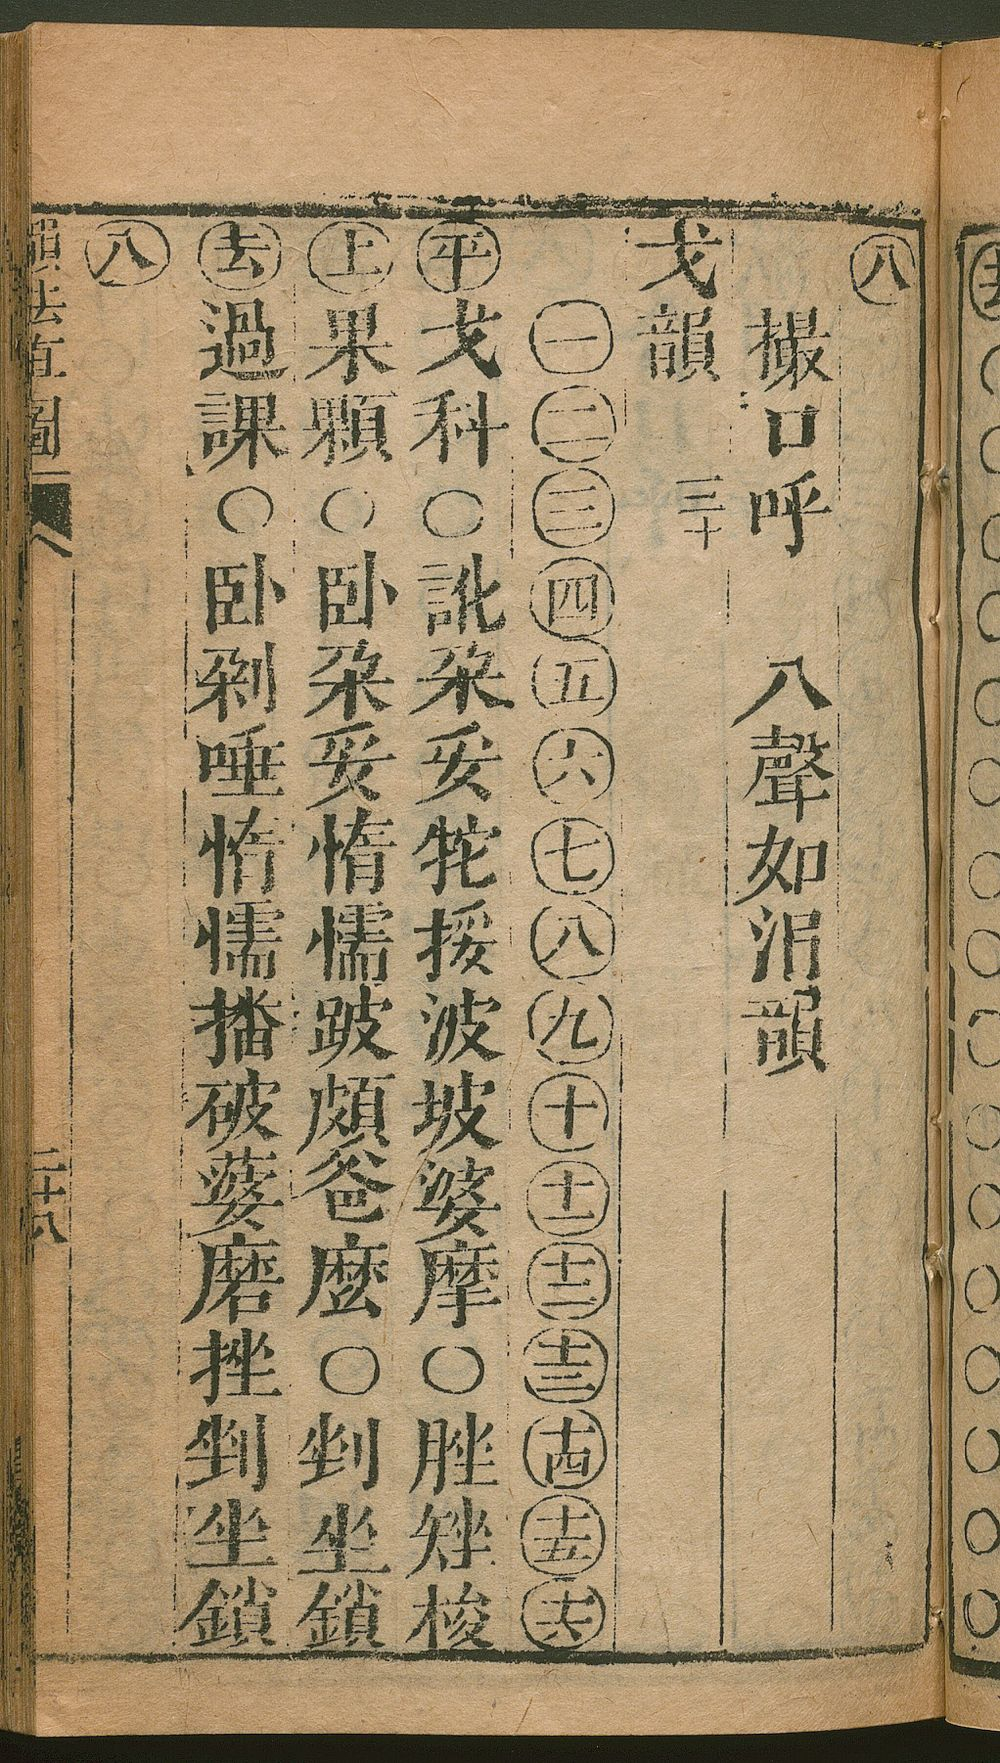 八
撮口呼　八聲如涓韻
戈韻　三十
一二三四五六七八九十十一十二十三十四十五十六
平戈科○訛朶妥牠捼波坡婆摩○脞矬梭
上果顆○卧朶妥惰懦跛頗爸麼○剉坐鎖
去過課○卧剁唾惰懦播破蔢磨挫剉坐鎖
八
韻法直圖　二十八